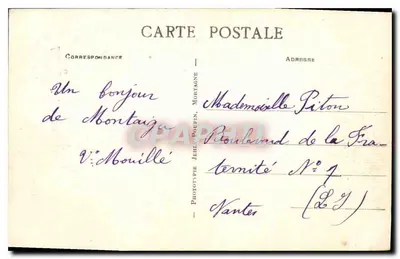 CARTE POSTALE
CORRESPONDANCE
ADRESSE
Un bonjour
de Montaigu
Vve Mouillé
PHOTOTYPIE JEHL-POUPIN, MORTAGNE
Mademoiselle Piton
Boulevard de la Fra-
ternité N° 7
(L I)
Nantes